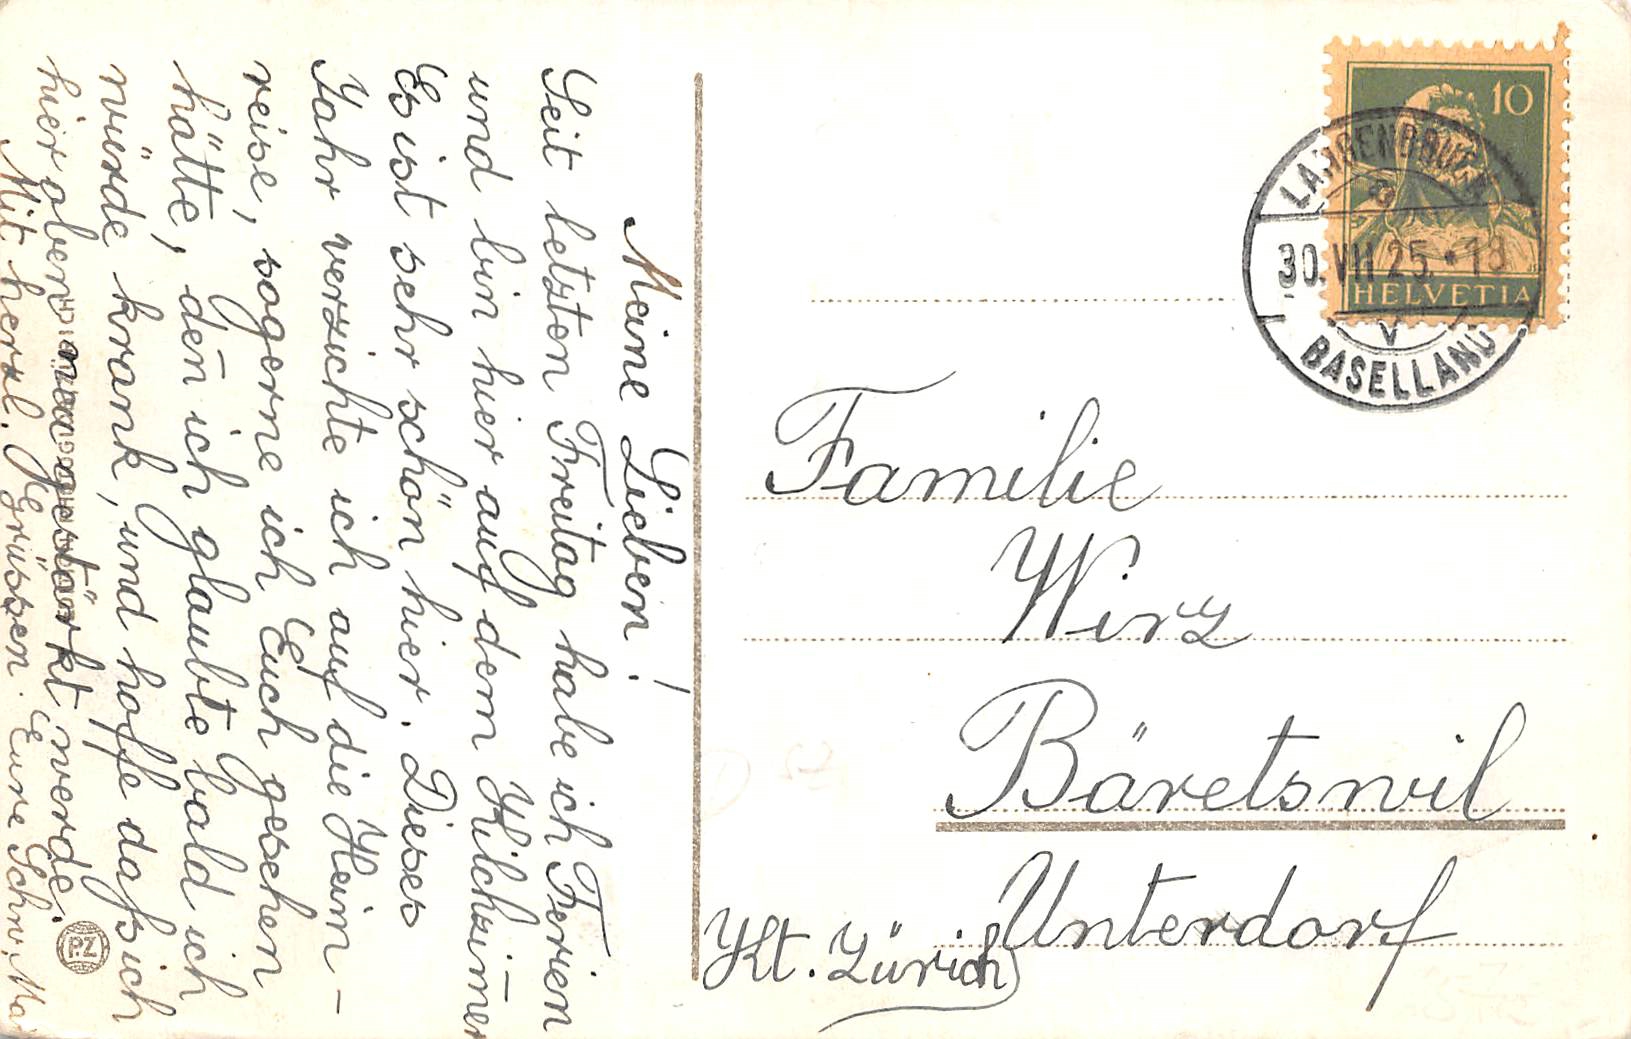 Meine Lieben!
Seit letzten Freitag habe ich Ferien
und bin hier auf dem Hilchzimer
Es ist sehr schön hier. Dieses
Jahr verzichte ich auf die Heim-
reise, sogerne ich Euch gesehen
hätte, den̄ ich glaubte bald ich
würde krank, und hoffe daß ich
hier oben neu gestärkt werde.
Mit herzl. Grüssen. Eure Schw. Mar
Familie
Wirz
Bäretswil
Unterdorf
Kt. Zürich
10
HELVETIA
LANGENBRUCK
a
30.VII.25.*18
V
BASELLAND
P.Z